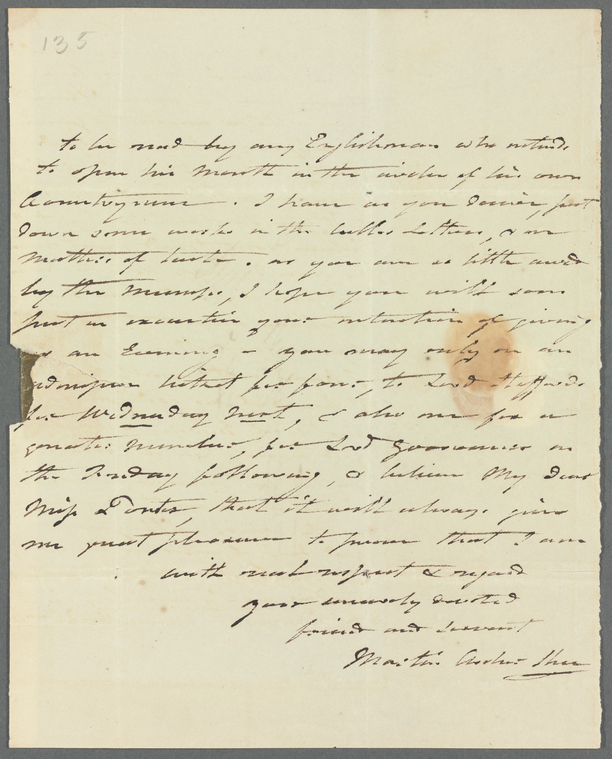 135
to be read by any Englishman who intends
to open his Mouth in the circle of his own
Countrymen. I have as you desire, put
down some works in the belles Lettres, & on
Matters of taste. as you are so little awed
by the Mumps, I hope you will soon
put in execution your intention of giving
us an Evening – you may rely on an
admission ticket for four, to Lord Staffords
for Wednesday next, & also one for a
greater number, for Lord Grosvenors on
the Friday following, & believe My dear
Miss Porter, that it will always give
me great pleasure to prove that I am
with real respect & regard
your sincerely devoted
friend and servant
Martin Archer Shee